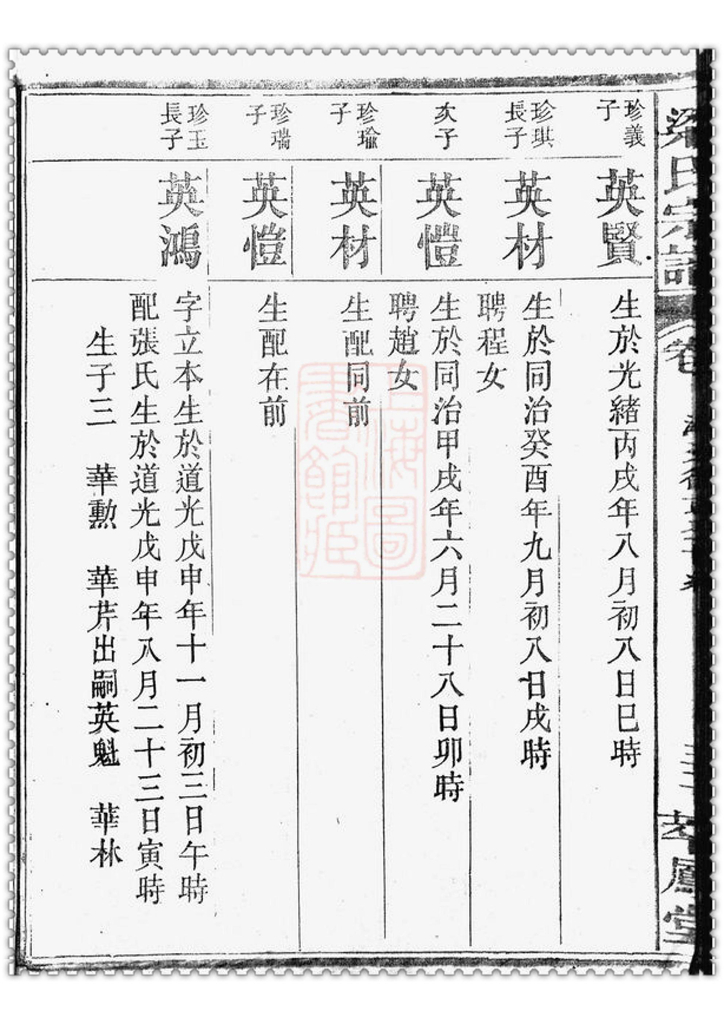 珍義子
英賢
生於光緒丙戌年八月初八日巳時
珍琪長子
英材
生於同治癸酉年九月初八日戌時
聘程女
次子
英愷
生於同治甲戌年六月二十八日卯時
聘趙女
珍瑜子
英材
生配同前
珍瑞子
英愷
生配在前
珍玉長子
英鴻
字立本生於道光戊申年十一月初三日午時
配張氏生於道光戊申年八月二十三日寅時
生子三 華勲 華芹出嗣英魁 華林
上海圖書館